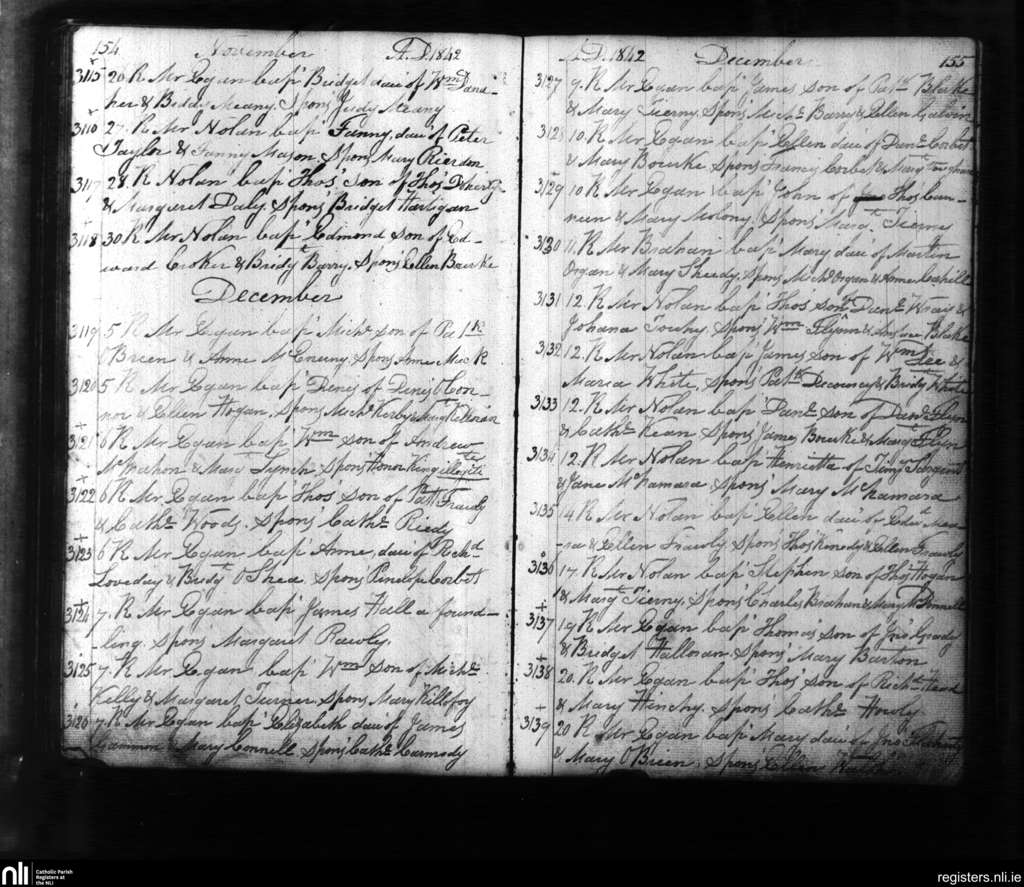 154 November A.D. 1842
3115 20 R Mr Egan bap' Bridget dau' of Wm Dana-
her & Biddy Meany. Spons Judy Meany
3116 27. R Mr Nolan bap' Fanny, dau' of Peter
Taylor & Fanny Mason. Spons Mary Riordon
3117 28. R Nolan bap' Thos' son of Thos' Doherty
& Margaret Daly, Spons' Bridget Hartigan
3118 30 R Mr Nolan bap' Edmond son of Ed-
ward Croker & Bridy Barry. Spons' Ellen Bourke
December
3119 5 R Mr Egan bap' Michl son of Patk
O Brien & Anne Spons Anne
3120 5 R Mr Egan bap' Denis of Denis O Con-
nor & Ellen Hogan, Spons Michl Kirby &
3121 6 R Mr Egan bap' Wm son of Andrew
McMahon & Margt Lynch Spons' Honor King illegite
3122 6 R Mr Egan bap' Thos' son of Patt Frawly
& Cathe Woods. Spons' Cathe Reedy
3123 6 R Mr Egan bap' Anne, dau' of Richd
Loveday & Bridy O Shea. Spons' Penelope Corbet
3124 7. R Mr Egan bap' James Hall a found-
ling. Spons Margaret Rawley.
3125 7. R Mr Egan bap' Wm son of Michl
Kelly & Margaret Turner. Spons, Mary
3126 7. R Mr Egan bap' Elizabeth dau' of James
Hammon & Mary Connell Spons Cathe Carmody
A.D. 1842 December 155
3127 9. R Mr Egan bap' James son of Patk Blake
& Mary Tierny. Spons Michl Barry & Ellen Galvin
3128 10. R Mr Egan bap' Ellen dau' of Danl Corbet
& Mary Bourke Spons Francis Corbet & Mary
3129 10 R Mr Egan bap' John of Thos Cun-
neen & Mary Molony. Spons' Margt Tierny
3130 11. R Mr Brahan bap' Mary dau' of Martin
Organ & Mary Sheedy. Spons, Michl Organ & Anne Cahill
3131 12. R Mr Nolan bap' Thos' son of Danl &
Johana Touhy. Spons Wm Flynn & Blake
3132 12. R Mr Nolan bap' James son of Wm Lee &
Maria White, Spons' Patk Decourcy & Bridy White
3133 12. R Mr Nolan bap' Danl son of Danl Flynn
& Cathe Kean Spons James Bourke & Margt Flynn
3134 12. R Mr Nolan bap' Henrietta of Timy Sargint
& Jane McNamara Spons' Mary McNamara
3135 14 R Mr Nolan bap' Ellen dau' of Edwd
& Ellen Frawly Spons Thos Kenedy & Ellen Frawly
3136 17. R Mr Nolan bap' Stephen son of Thos Hogan
& Margt Tierny. Spons' Charles Brahan & Mary McDonnell
3137 19 R Mr Egan bap' Thomas son of Jno' Grady
& Bridget Halloran Spons' Mary Barton
3138 20. R Mr Egan bap' Thos' son of Richd Hand
& Mary Hinchy. Spons Cathe Howly
3139 20 R Mr Egan bap' Mary dau' of Jno' Flaherty
& Mary O Brien, Spons' Ellen
nli Catholic Parish
Registers at
the NLI
registers.nli.ie